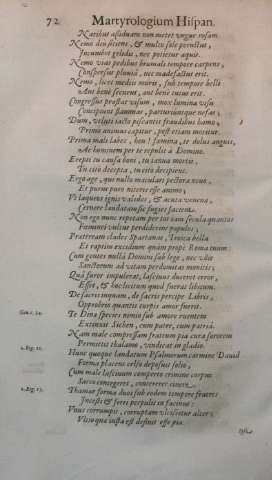 72 Martyrologium Hispan.
Naribus assiduum non metet ungue rosam.
Nemo deu sitiens, & multo sole perustus,
Incumbit gelidis, nec potietur aquis.
Nemo vias pedibus brumali tempore carpens,
Conspersus pluviâ, nec madefactus erit.
Nemo, licet mediis muris, sub tempore belli
Ant benè securus, aut benè tutus erit.
Congressus praestat visum, mox lumina visu
Concipiunt flammas, parturiuntque nefas:
Dum, veluti
Primò animus capitur, post etiam moritur.
Prima mali labes, heu! foemina, te dolus anguis,
Ac hominem per te repulit à Domino.
Erepti tu causa boni, tu ianua mortis
Tu citò decepta, tu citò decipiens.
Ergo age, qui nullo maculari pectora naevo,
Et purus puro niteris esse animo;
Vt laqueos ignis validos, & acuta venena,
Cernere laudatus sic fugies faciem.
Nam ego nunc repetam per tot iam secula quantos
Faeminei vultus perdidicere populos;
Praeteream clades Spartanas, Troica bella
Et raptim excidium quàm propè Roma tuum.
Cùm gentes nullâ Domini sub lege, nec ullis
Sanctorum ad vitam perdomitas monitis;
Quâ furor impulerat, lascivus duceret error,
Esset, & hoc licitum quod foeret libitum.
De sacris inquam, de sacris percipe Libris,
Opprobris quantis turpis amor fuerit.
Te Dina species nimio sub amore ruentem
Extinxit Sichen, cum pater, cum patriâ.
Nam male compressam fratrum pia cura sororem
Permittit thalamo, vindicat in gladio.
Hunc quoque laudatum Psalmorum carmine David
Forma placens celso deposuit solio,
Cùm male lascivum comperte crimine corpus
Sacco contegeret, contereret cinere.
Thamar forma duos sub eodem tempore fratres
Incesti & ferri perpulit in facinus:
Vnus corrumpit, corruptam ulciscitur alter;
Vltio que iusta est desinit esse pia.
Gen. c. 34.
2. Reg. 11.
2. Reg. 13.